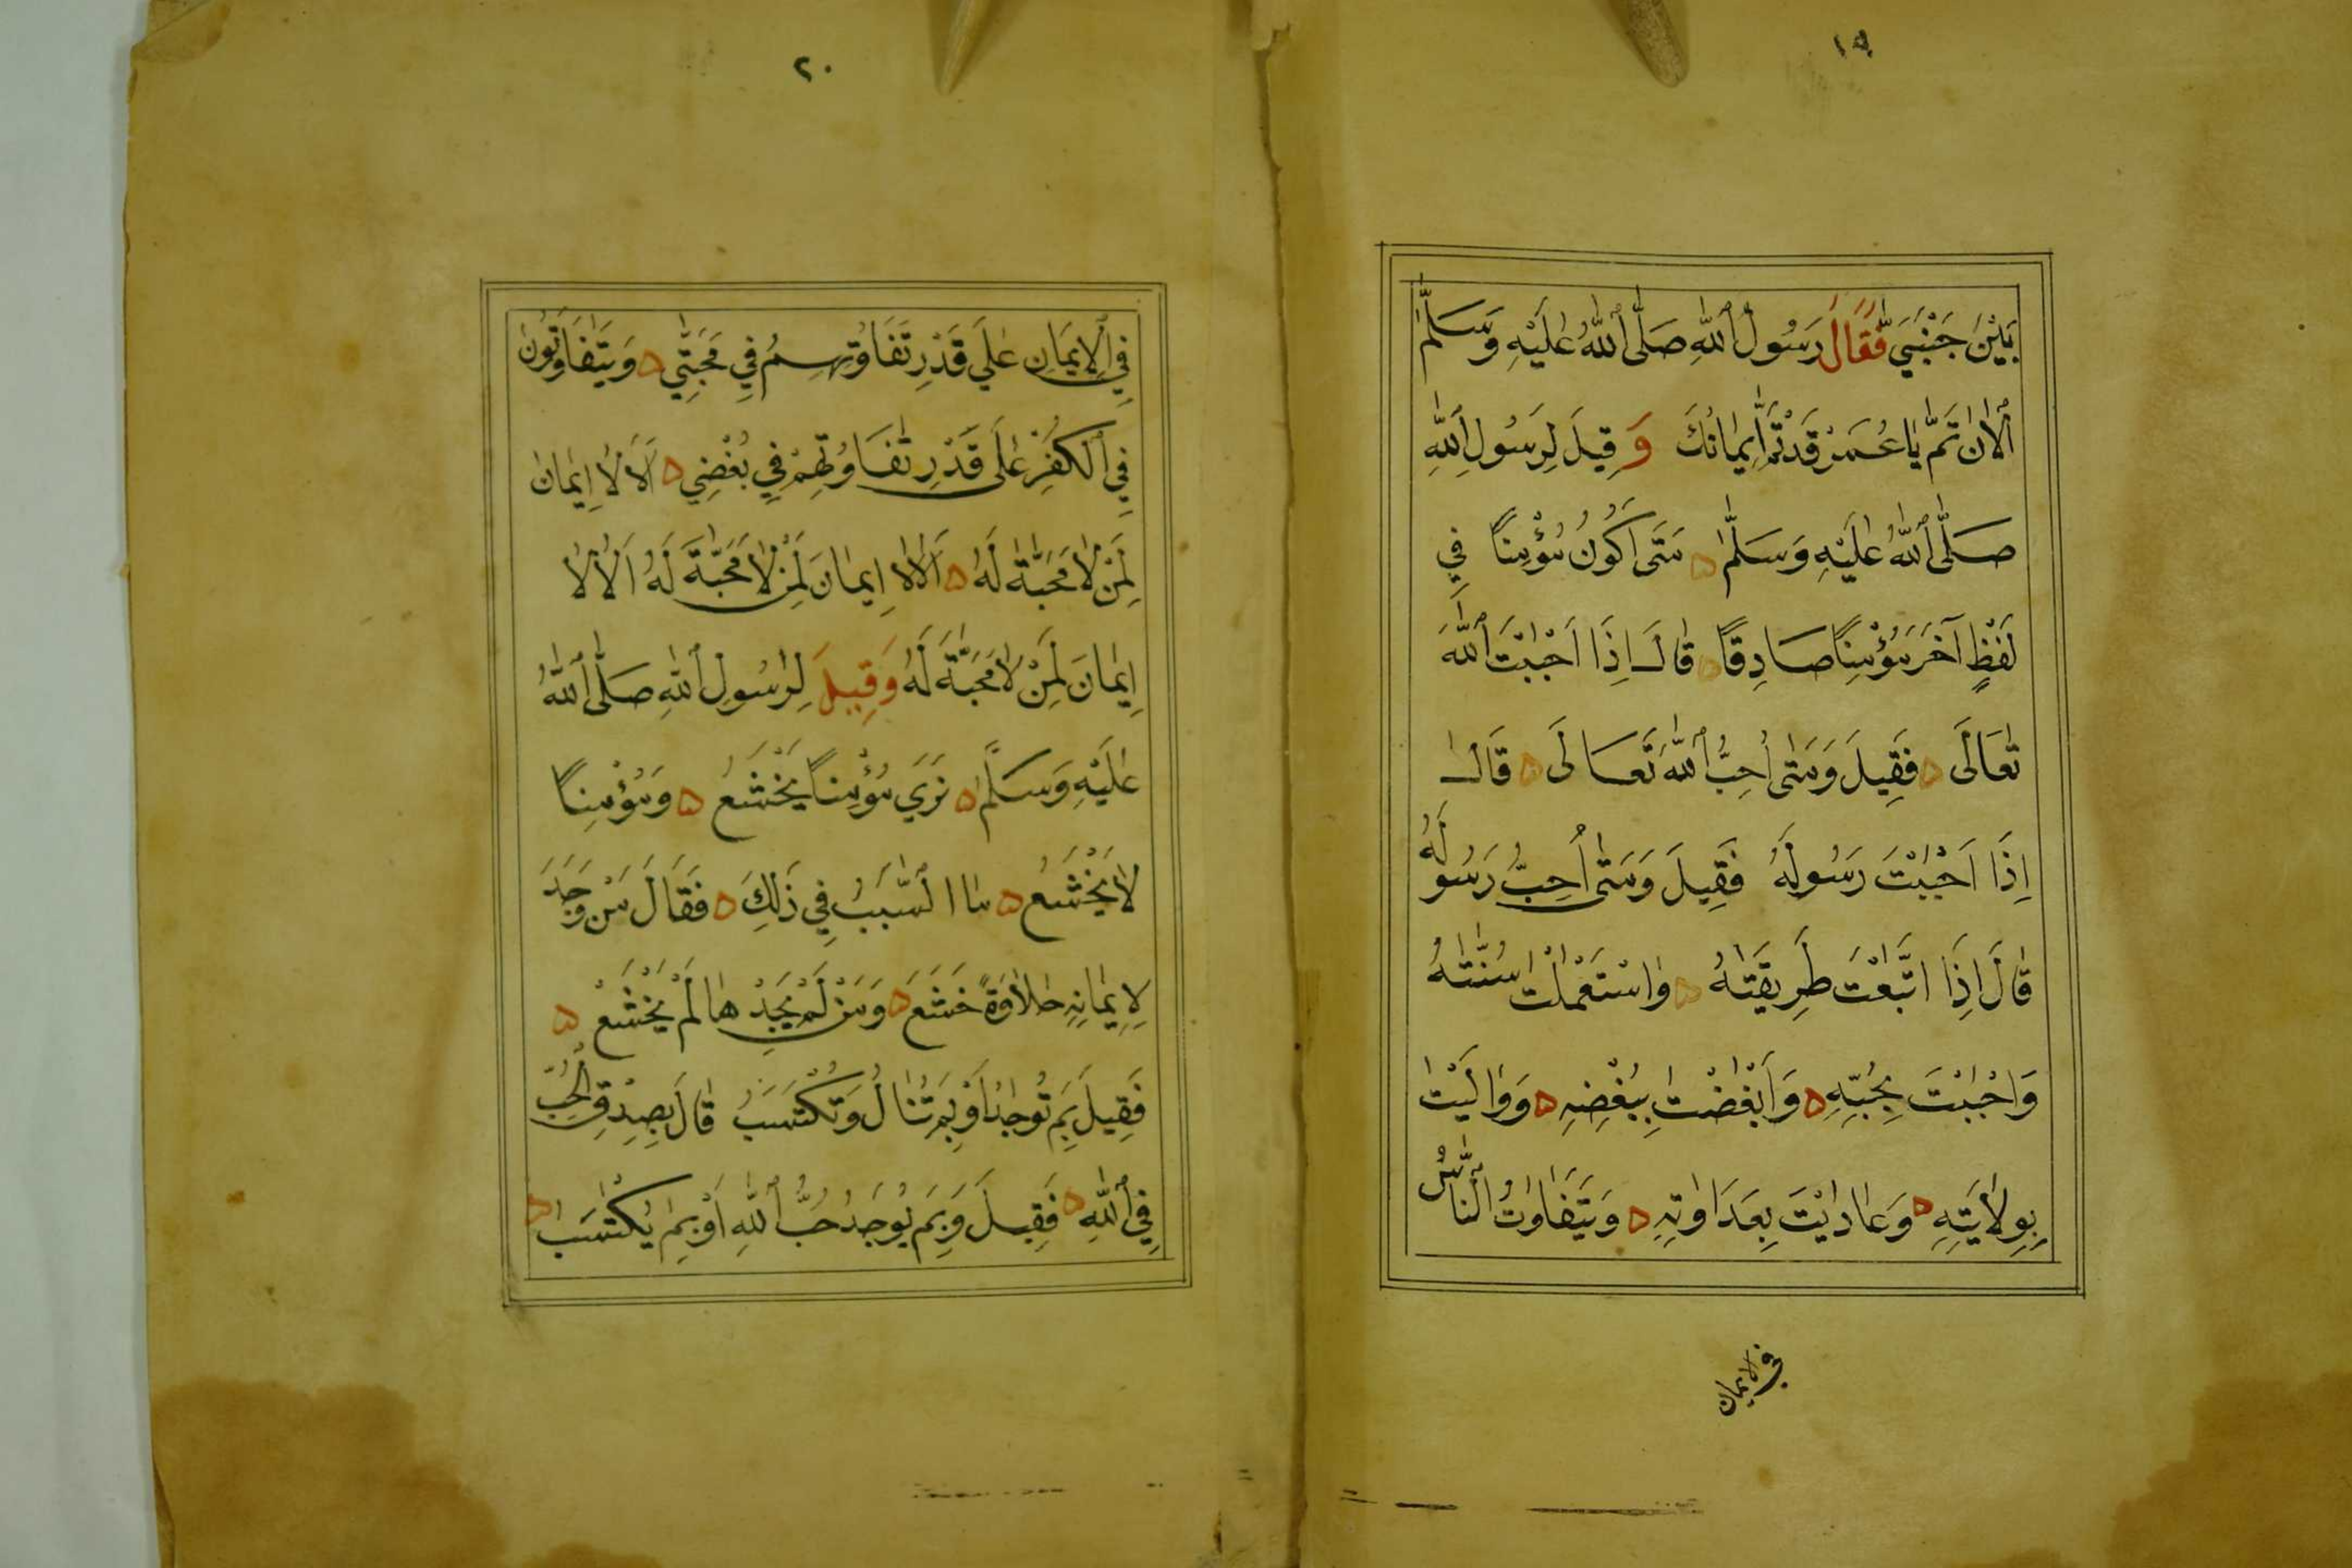 ١٩
بَيْنَ جَنْبَيَّ فَقَالَ رَسُولُ اللّٰهِ صَلَّى اللّٰهُ عَلَيْهِ وَسَلَّمَ
اَلْاٰنَ تَمَّ يَا عُمَرُ قَدْ تَمَّ اِيمَانُكَ وَقِيلَ لِرَسُولِ اللّٰهِ
صَلَّى اللّٰهُ عَلَيْهِ وَسَلَّمَ ۵ مَتَى اَكُونُ مُؤْمِنًا فِي
لَفْظٍ آخَرَ مُؤْمِنًا صَادِقًا ۵ قَالَ اِذَا اَحْبَبْتَ اللّٰهَ
تَعَالَى ۵ فَقِيلَ وَمَتَى اُحِبُّ اللّٰهَ تَعَالَى ۵ قَالَ
اِذَا اَحْبَبْتَ رَسُولَهُ فَقِيلَ وَمَتَى اُحِبُّ رَسُولَهُ
قَالَ اِذَا اتَّبَعْتَ طَرِيقَتَهُ ۵ وَاسْتَعْمَلْتَ سُنَّتَهُ
وَاَحْبَبْتَ بِحُبِّهِ ۵ وَاَبْغَضْتَ بِبُغْضِهِ ۵ وَوَالَيْتَ
بِوِلَايَتِهِ ۵ وَعَادَيْتَ بِعَدَاوَتِهِ ۵ وَيَتَفَاوَتُ النَّاسُ
في الايمان
٢٠
فِي الْاِيمَانِ عَلَى قَدْرِ تَفَاوُتِهِمْ فِي مَحَبَّتِي ۵ وَيَتَفَاوَتُونَ
فِي الْكُفْرِ عَلَى قَدْرِ تَفَاوُتِهِمْ فِي بُغْضِي ۵ اَلَا لَا اِيمَانَ
لِمَنْ لَا مَحَبَّةَ لَهُ ۵ اَلَا لَا اِيمَانَ لِمَنْ لَا مَحَبَّةَ لَهُ اَلَا لَا
اِيمَانَ لِمَنْ لَا مَحَبَّةَ لَهُ وَقِيلَ لِرَسُولِ اللّٰهِ صَلَّى اللّٰهُ
عَلَيْهِ وَسَلَّمَ ۵ نَرَى مُؤْمِنًا يَخْشَعُ ۵ وَمُؤْمِنًا
لَا يَخْشَعُ ۵ مَا السَّبَبُ فِي ذَلِكَ ۵ فَقَالَ مَنْ وَجَدَ
لِاِيمَانِهِ حَلَاوَةً خَشَعَ ۵ وَمَنْ لَمْ يَجِدْهَا لَمْ يَخْشَعْ ۵
فَقِيلَ بِمَ تُوجَدُ اَوْ بِمَ تُنَالُ وَتُكْتَسَبُ قَالَ بِصِدْقِ الْحُبِّ
فِي اللّٰهِ ۵ فَقِيلَ وَبِمَ يُوجَدُ حُبُّ اللّٰهِ اَوْ بِمَ يُكْتَسَبُ ۵